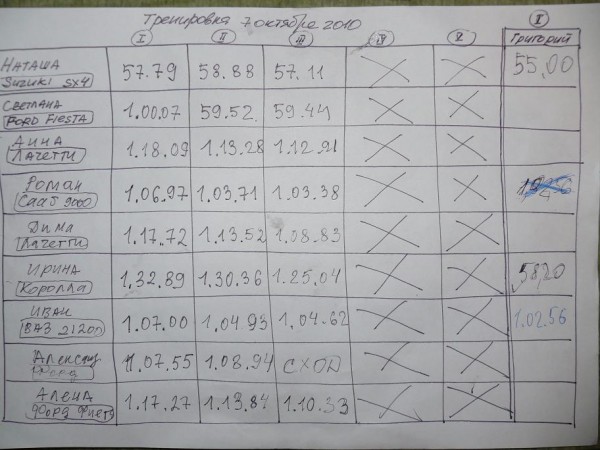 Тренировка 7 октября 2010
I II III IV V I
Григорий
Наташа 57.79 58.88 57.11 55,00
Suzuki SX4
Светлана 1.00.07 59.52. 59.44
Ford Fiesta
Анна 1.18.09 1.13.28 1.12.91
Лачетти
Роман 1.06.97 1.03.71 1.03.38
Сааб 9000
Дима 1.17.72 1.13.52 1.08.83
Лачетти
Ирина 1,32.89 1.30.36 1.25.04 58,20
Королла
Иван 1.07.00 1.04.93 1.04.62 1.02.56
ВАЗ
1.07.55 1.08.94 СХОД
Алена 1.17.27 1.13.84 1.10.33
Форд